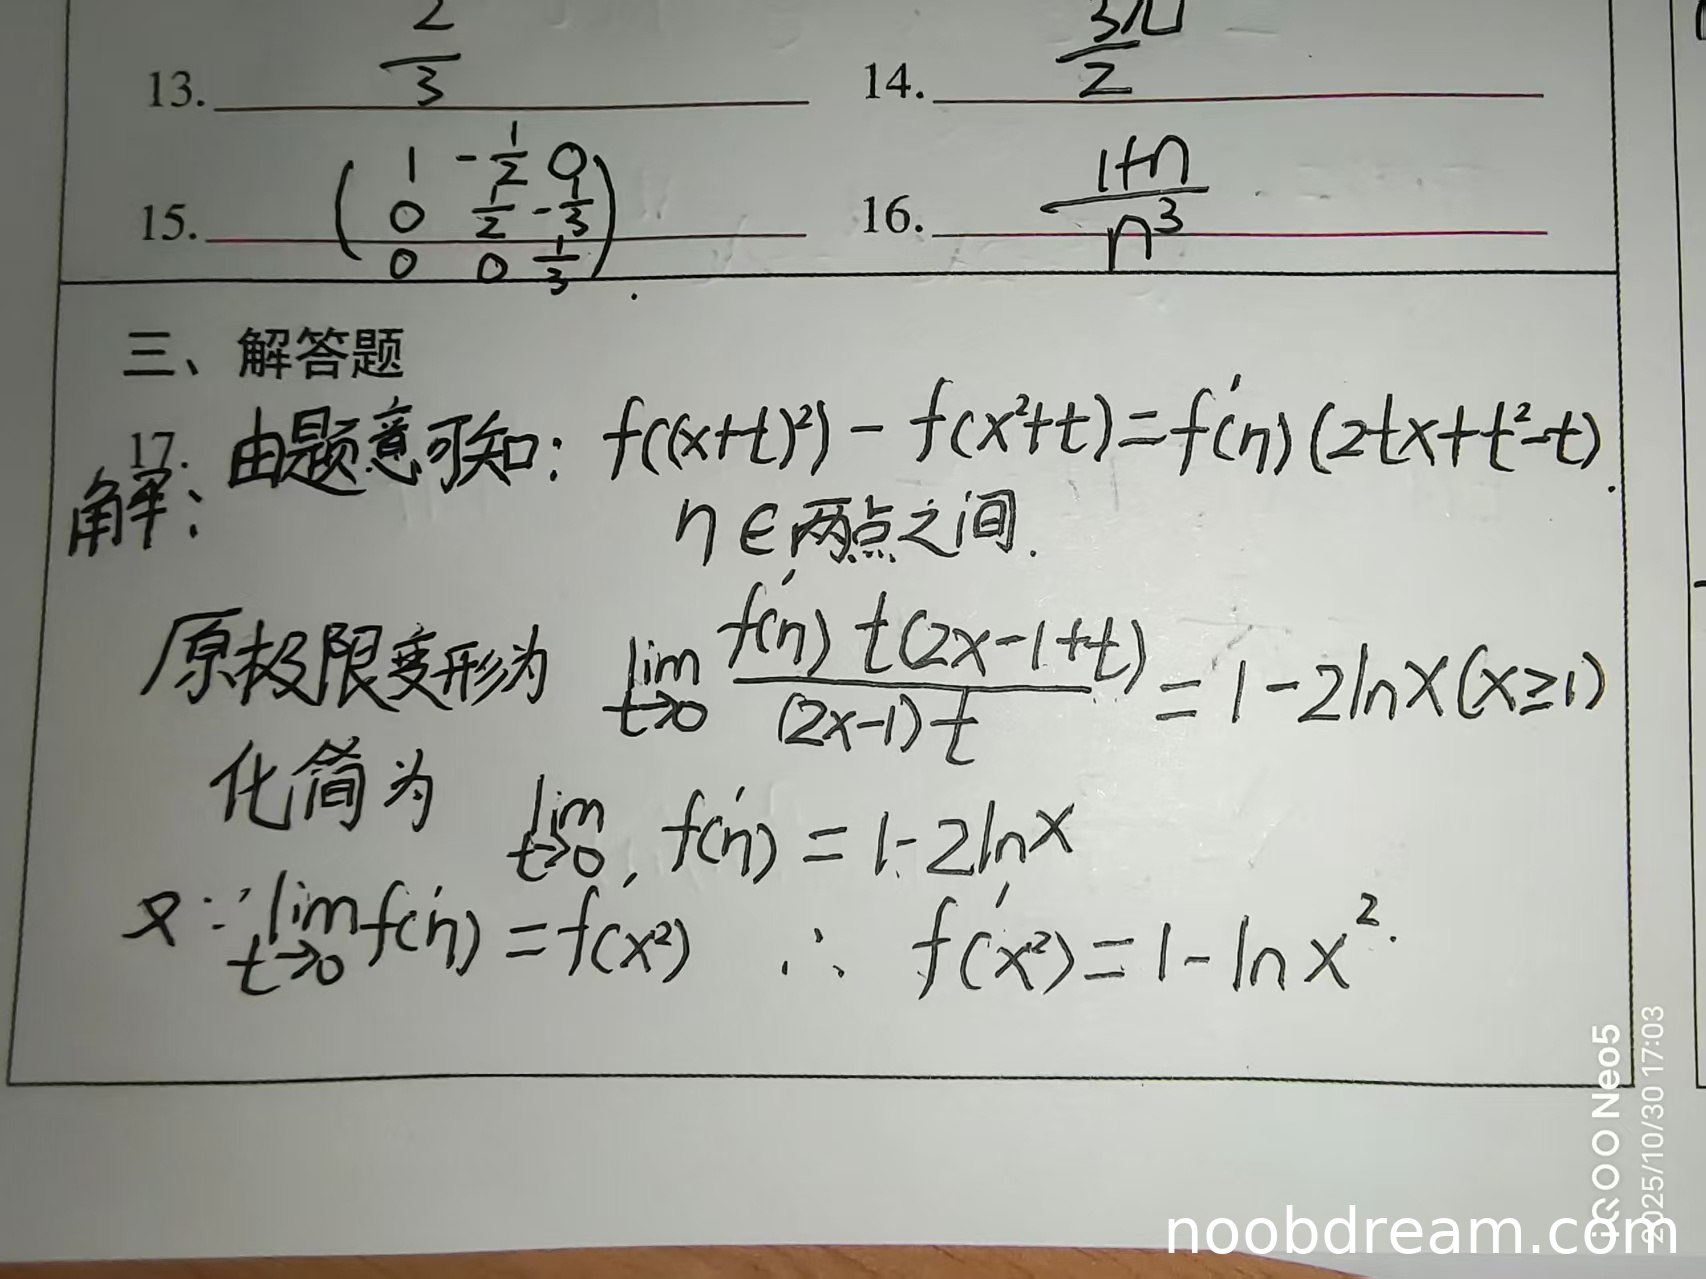 13. 2/3 14. 3π/2
15. (1 -1/2 0
0 1/2 -1/3
0 0 1/3) 16. 1+n/n³
三、解答题
17. 由题意可知: f((x+t)²) - f(x²+t) = f'(η)(2tx+t²-t).
解:
η∈两点之间.
原极限变形为 lim t→0 f'(η) t(2x-1+t)/(2x-1)t = 1-2lnx(x≥1)
化简为 lim t→0 f'(η) = 1-2lnx
又∵ lim t→0 f'(η) = f'(x²) ∴ f'(x²) = 1-lnx².
iQOO Neo5
2025/10/30 17:03
noobdream.com